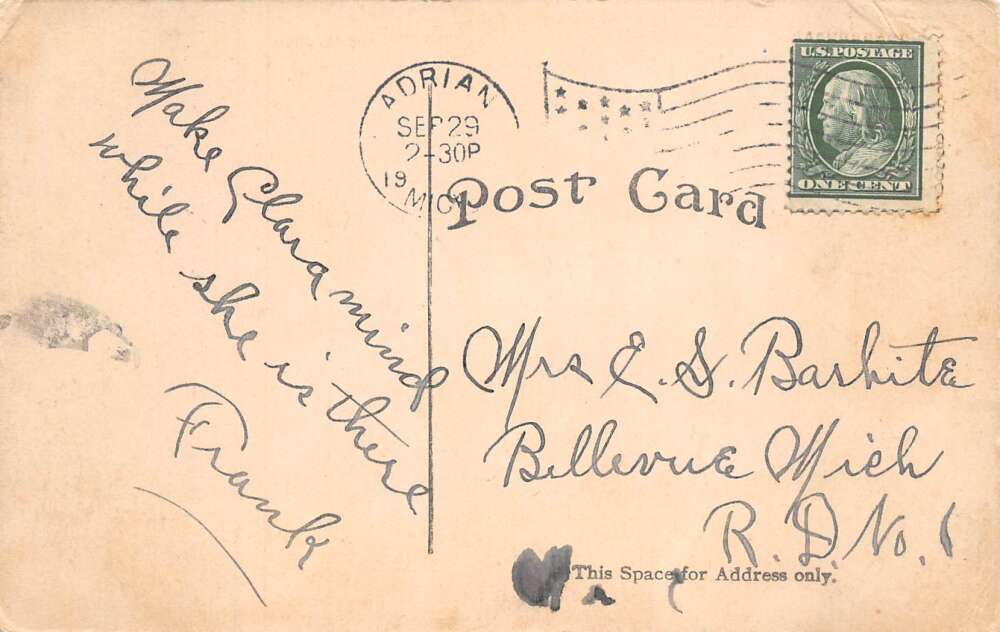 Make Clara mind
while she is there
Frank
ADRIAN
SEP 29
2-30P
19
MICH
U.S. POSTAGE
ONE CENT
Post Card
Mrs E. S. Barhite
Bellevue Mich
R. D. No. 1
This Space for Address only.